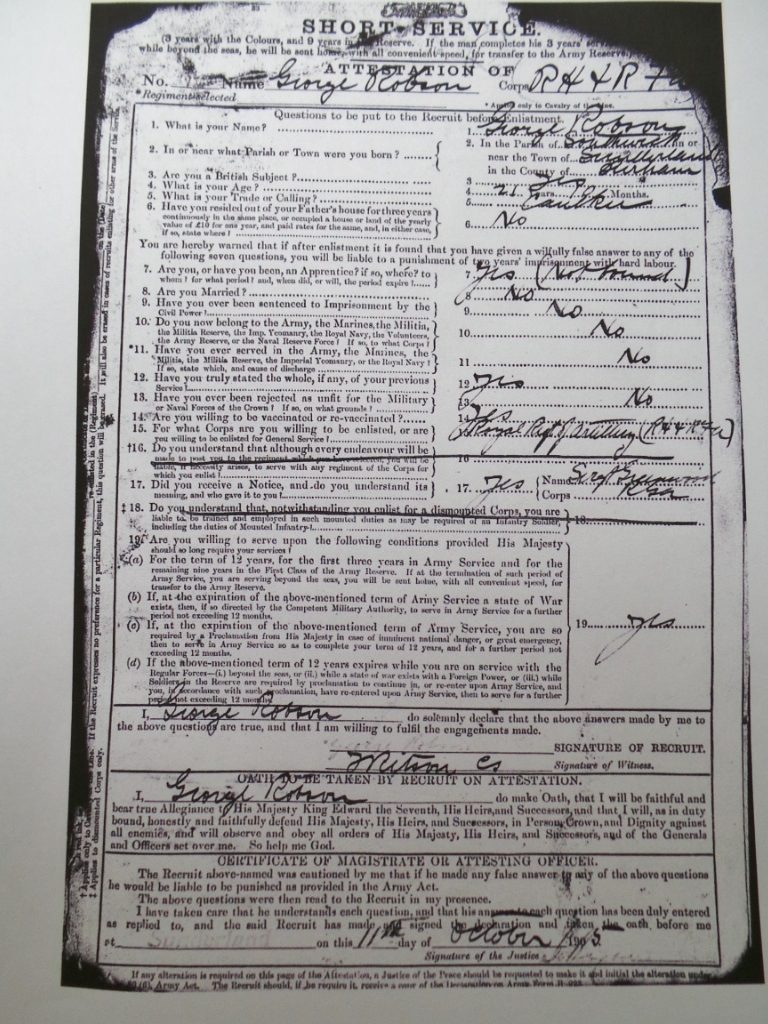 SHORT SERVICE.
(3 years with the Colours, and 9 years in the Reserve. If the man completes his 3 years'
while beyond the seas, he will be sent home, with all convenient speed, for transfer to the Army Reserve.)
ATTESTATION OF
No. Name George Robson Corps R H & R F A
*Regiment selected
* Applies only to Cavalry of the Line.
Questions to be put to the Recruit before Enlistment.
1. What is your Name? 1. George Robson
2. In or near what Parish or Town were you born? 2. In the Parish of Southwick in or
near the Town of Sunderland
in the County of Durham
3. Are you a British Subject? 3. Yes
4. What is your Age? 4. 21 Years Months.
5. What is your Trade or Calling? 5. Caulker
6. Have you resided out of your Father's house for three years
continuously in the same place, or occupied a house or land of the yearly
value of £10 for one year, and paid rates for the same, and, in either case,
if so, state where? 6. No
You are hereby warned that if after enlistment it is found that you have given a wilfully false answer to any of the
following seven questions, you will be liable to a punishment of two years' imprisonment with hard labour.
7. Are you, or have you been, an Apprentice? if so, where? to
whom? for what period? and, when did, or will, the period expire? 7. Yes (Not bound)
8. Are you Married? 8. No
9. Have you ever been sentenced to Imprisonment by the
Civil Power? 9. No
10. Do you now belong to the Army, the Marines, the Militia,
the Militia Reserve, the Imp. Yeomanry, the Royal Navy, the Volunteers,
the Army Reserve, or the Naval Reserve Force? If so, to what Corps? 10. No
*11. Have you ever served in the Army, the Marines, the
Militia, the Militia Reserve, the Imperial Yeomanry, or the Royal Navy?
If so, state which, and cause of discharge 11. No
12. Have you truly stated the whole, if any, of your previous
Service? 12 Yes
13. Have you ever been rejected as unfit for the Military
or Naval Forces of the Crown? If so, on what grounds? 13. No
14. Are you willing to be vaccinated or re-vaccinated? 14. Yes
15. For what Corps are you willing to be enlisted, or are
you willing to be enlisted for General Service? Royal Regt of Artillery (R H & R F A)
†16. Do you understand that although every endeavour will be
made to post you to the regiment which you have selected, you will be
liable, if necessity arises, to serve with any regiment of the Corps for
which you enlist? 16
17. Did you receive a Notice, and do you understand its
meaning, and who gave it to you? 17. Yes Name Sergt
Corps RGA
‡18. Do you understand that, notwithstanding you enlist for a dismounted Corps, you are
liable to be trained and employed in such mounted duties as may be required of an Infantry Soldier,
including the duties of Mounted Infantry? 18.
19. Are you willing to serve upon the following conditions provided His Majesty
should so long require your services?
(a) For the term of 12 years, for the first three years in Army Service and for the
remaining nine years in the First Class of the Army Reserve. If at the termination of such period of
Army Service, you are serving beyond the seas, you will be sent home, with all convenient speed, for
transfer to the Army Reserve.
(b) If, at the expiration of the above-mentioned term of Army Service a state of War
exists, then, if so directed by the Competent Military Authority, to serve in Army Service for a further
period not exceeding 12 months.
(c) If, at the expiration of the above-mentioned term of Army Service, you are so
required by a Proclamation from His Majesty in case of imminent national danger, or great emergency,
then to serve in Army Service so as to complete your term of 12 years, and for a further period not
exceeding 12 months.
(d) If the above-mentioned term of 12 years expires while you are on service with the
Regular Forces—(i.) beyond the seas, or (ii.) while a state of war exists with a Foreign Power, or (iii.) while
Soldiers in the Reserve are required by proclamation to continue in, or re-enter upon Army Service, and
you, in accordance with such proclamation, have re-entered upon Army Service, then to serve for a further
period not exceeding 12 months
19. Yes
I, George Robson do solemnly declare that the above answers made by me to
the above questions are true, and that I am willing to fulfil the engagements made.
SIGNATURE OF RECRUIT.
Signature of Witness.
OATH TO BE TAKEN BY RECRUIT ON ATTESTATION.
I, George Robson do make Oath, that I will be faithful and
bear true Allegiance to His Majesty King Edward the Seventh, His Heirs, and Successors, and that I will, as in duty
bound, honestly and faithfully defend His Majesty, His Heirs, and Successors, in Person, Crown, and Dignity against
all enemies, and will observe and obey all orders of His Majesty, His Heirs, and Successors, and of the Generals
and Officers set over me. So help me God.
CERTIFICATE OF MAGISTRATE OR ATTESTING OFFICER.
The Recruit above-named was cautioned by me that if he made any false answer to any of the above questions
he would be liable to be punished as provided in the Army Act.
The above questions were then read to the Recruit in my presence.
I have taken care that he understands each question, and that his answer to each question has been duly entered
as replied to, and the said Recruit has made and signed the declaration and taken the oath before me
at Sunderland on this 11th day of October 1903.
Signature of the Justice
If any alteration is required on this page of the Attestation, a Justice of the Peace should be requested to make it and initial the alteration under
Army Act. The Recruit should, if he require it, receive a copy of the Declaration on Army Form